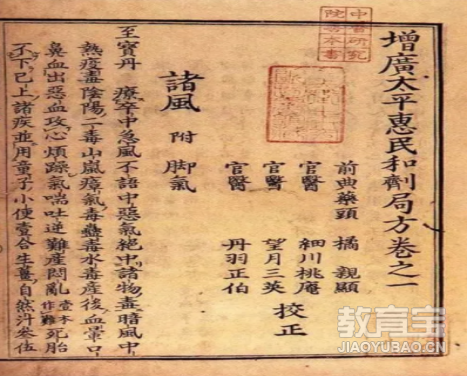 增廣太平惠民和劑局方卷之一
前典藥頭 橘 親顯
官醫 細川桃庵
官醫 望月三英 校正
官醫 丹羽正伯
諸風 附 脚氣
至寶丹 療卒中急風不語中惡氣絶中諸物毒暗風中
熱疫毒陰陽二毒山嵐瘴氣毒蠱毒水毒産後血暈口
鼻血出惡血攻心煩躁氣喘吐逆難産悶亂 一本作難 死胎
不下已上諸疾並用童子小便一合生薑自然汁三伍
教育宝
JIAOYUBAO.CN